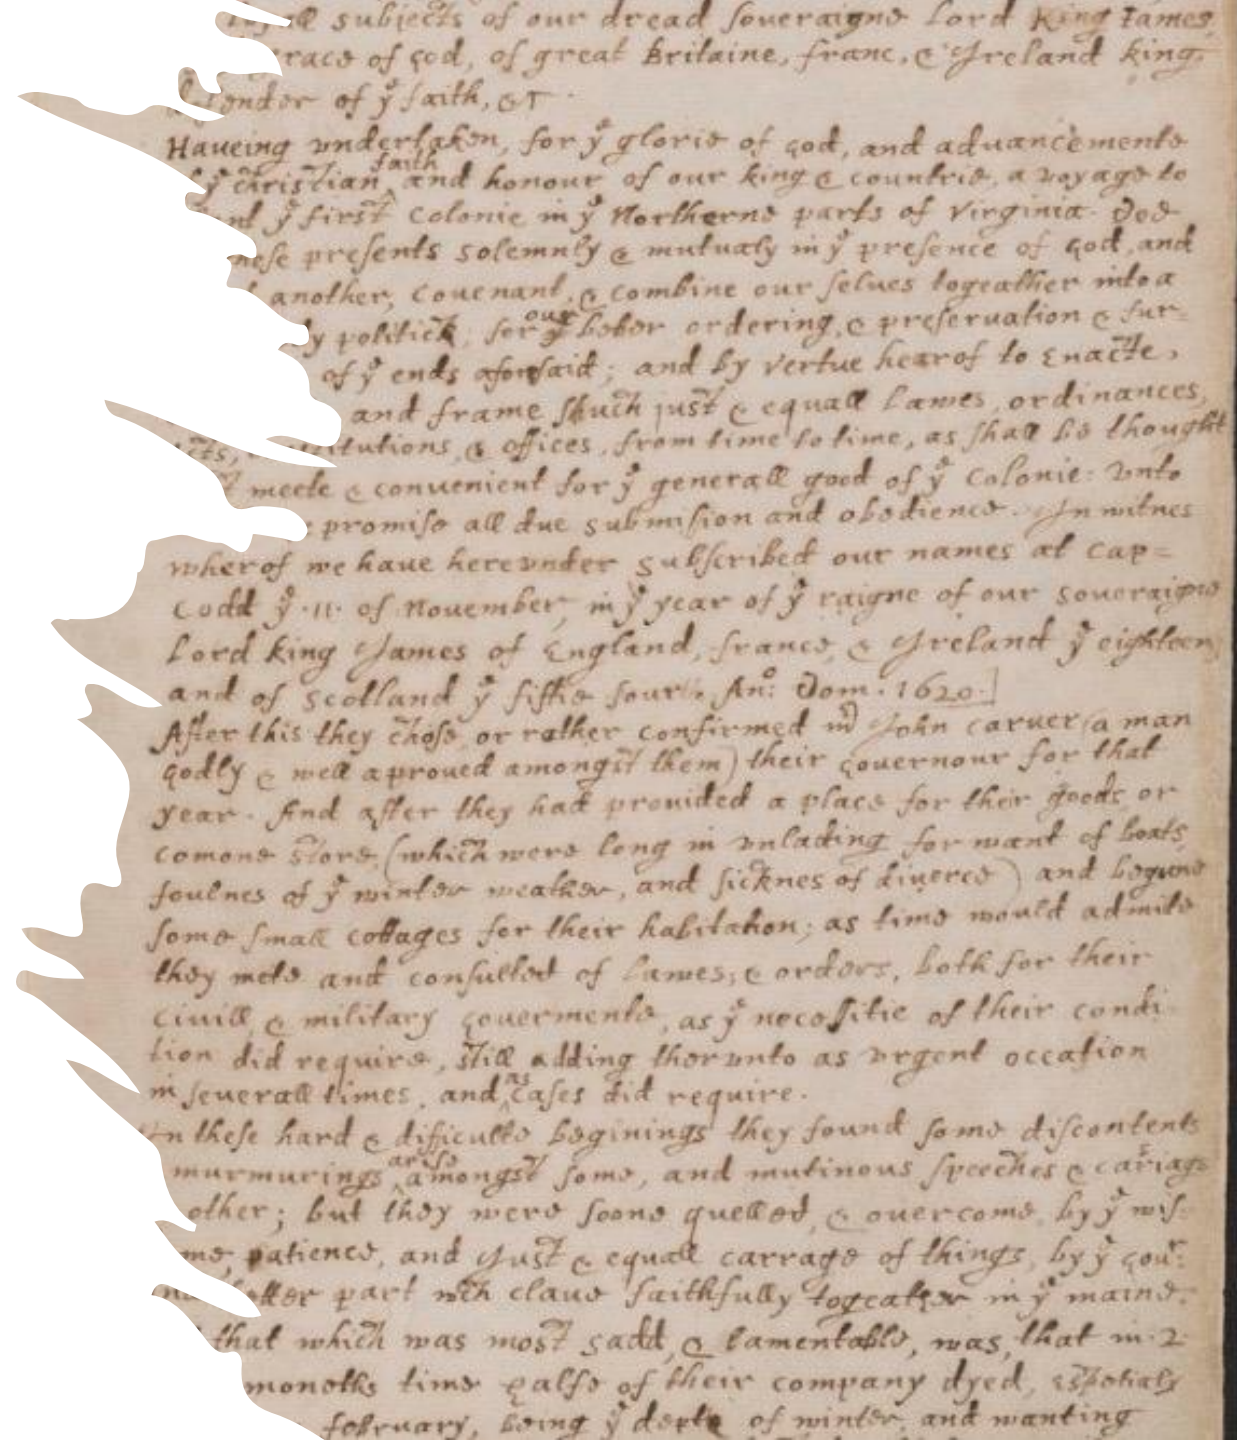 subjects of our dread soveraigne Lord King James,
of god, of great Britaine, franc, & Ireland king,
of yͤ faith, &c
Haveing undertaken, for yͤ glorie of god, and advancemente
yͤ christian ^faith and honour of our king & countrie, a voyage to
yͤ first colonie in yͤ Northerne parts of Virginia. Doe
presents solemnly & mutualy in yͤ presence of god, and
another, covenant, & combine our selves togeather into a
politick, for our yͤ beter ordering, & preservation & fur=
of yͤ ends aforesaid; and by vertue hearof to Enacte,
and frame shuch just & equall Lawes, ordinances,
& offices, from time to time, as shall be thought
meete & convenient for yͤ generall good of yͤ Colonie: unto
promise all due submision and obedience. In witnes
wherof we have hereunder subscribed our names at Cap=
Codd yͤ .11. of November, in yͤ year of yͤ raigne of our soveraigne
Lord king James of England, france, & Ireland yͤ eighteen
and of Scotland yͤ fiftie fourth. Anͦ: Dom. 1620.]
After this they chose, or rather confirmed mʳ John carver (a man
godly & well aproved amongst them) their governour for that
year. And after they had provided a place for their goods, or
comone store, (which were long in unlading for want of boats,
foulnes of yͤ winter weather, and sicknes of diverce) and begune
some small cottages for their habitation; as time would admitte
they mete and consulted of lawes, & orders, both for their
civill, & military govermente, as yͤ necessitie of their condi-
tion did require, still adding therunto as urgent occasion
in severall times, and ^as cases did require.
In these hard & difficulte beginings they found some discontents
murmurings ^arise amongst some, and mutinous speeches & cariags
other; but they were soone quelled, & overcome, by yͤ wis-
patience, and Just & equall carrage of things, by yͤ govʳ:
better part wch clave faithfully togeather in yͤ maine.
that which was most sadd, & lamentable, was, that in .2.
moneths time halfe of their company dyed, espetialy
february, being yͤ depth of winter, and wanting